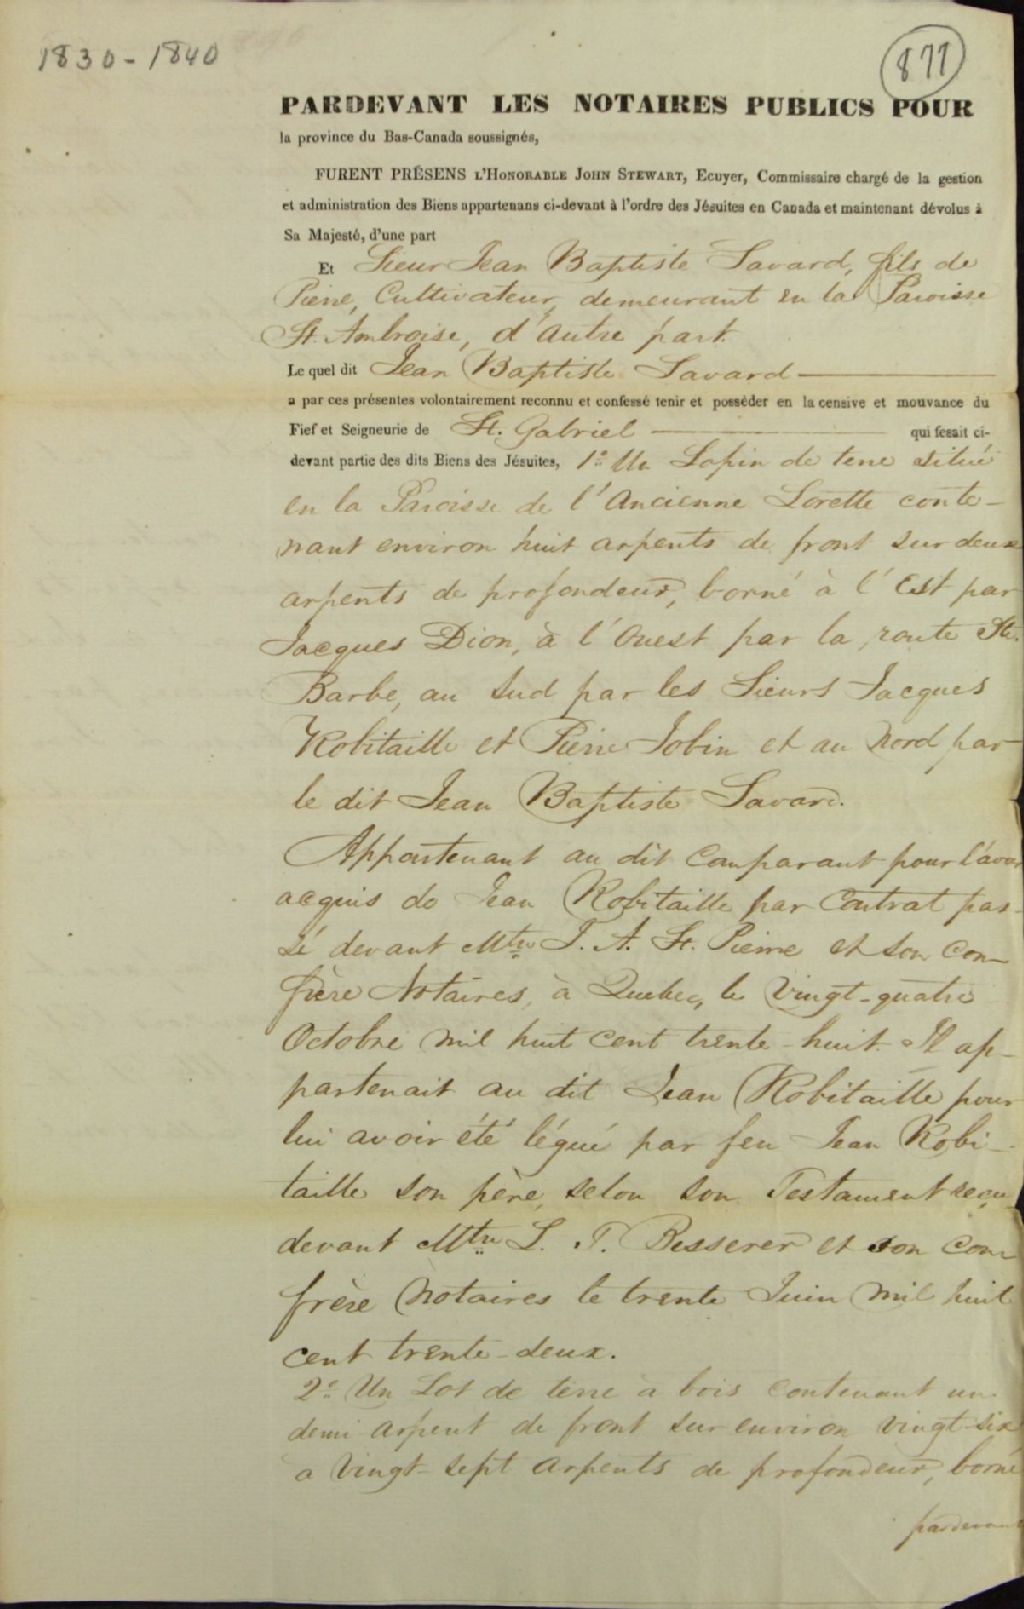 1830-1840
877
PARDEVANT LES NOTAIRES PUBLICS POUR
la province du Bas-Canada soussignés,
FURENT PRÉSENS L'HONORABLE JOHN STEWART, Ecuyer, Commissaire chargé de la gestion
et administration des Biens appartenans ci-devant à l'ordre des Jésuites en Canada et maintenant dévolus à
Sa Majesté, d'une part
Et Sieur Jean Baptiste Savard, fils de
Pierre, Cultivateur, demeurant en la Paroisse
St. Ambroise, d'autre part.
Le quel dit Jean Baptiste Savard
a par ces présentes volontairement reconnu et confessé tenir et possèder en la censive et mouvance du
Fief et Seigneurie de St. Gabriel qui fesait ci-
devant partie des dits Biens des Jésuites, 1º. Un Lopin de terre situé
en la Paroisse de l'Ancienne Lorette conte-
nant environ huit arpents de front sur deux
arpents de profondeur, borné à l'Est par
Jacques Dion, à l'Ouest par la route Ste.
Barbe, au Sud par les Sieurs Jacques
Robitaille et Pierre Jobin et au Nord par
le dit Jean Baptiste Savard.
Appartenant au dit Comparant pour l'avoir
acquis de Jean Robitaille par Contrat pas-
sé devant Mtre J. A. St. Pierre et son Con-
frère Notaires, à Quebec, le Vingt-quatre
Octobre mil huit cent trente-huit. Il ap-
partenait au dit Jean Robitaille pour
lui avoir été légué par feu Jean Robi-
taille son père, selon son Testament reçu
devant Mtre L. T. Besserer et son Con-
frère Notaires le trente Juin mil huit
cent trente-deux.
2º. Un Lot de terre à bois contenant un
demi-arpent de front sur environ vingt-six
à Vingt-sept arpents de profondeur, borné
pardevant